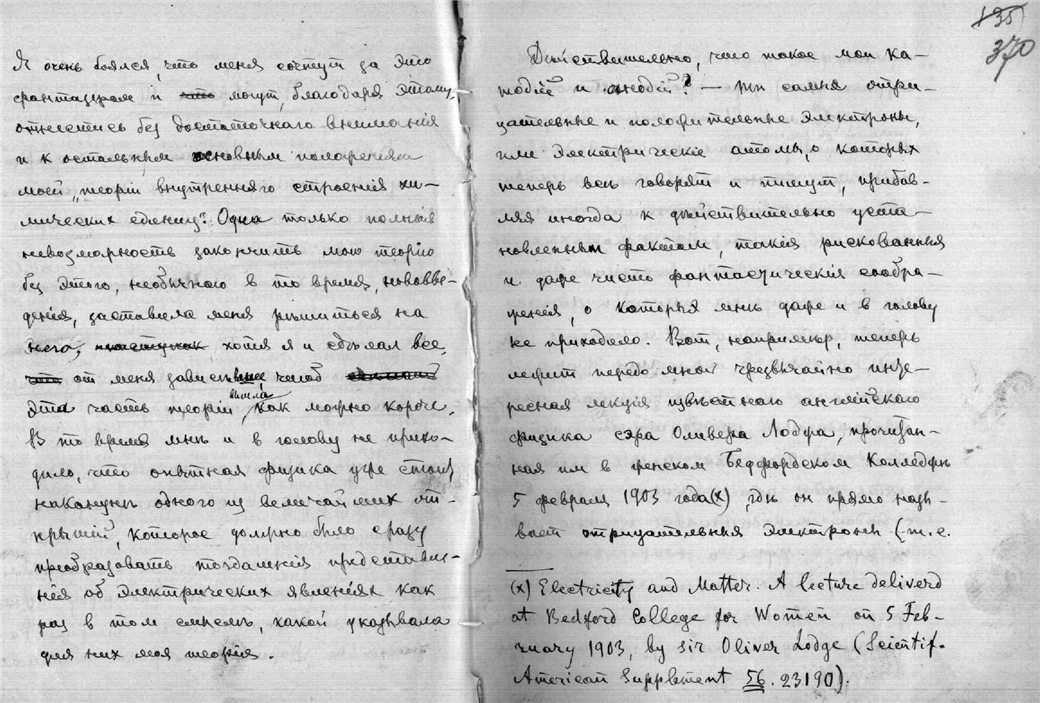 Я очень боялся, что меня сочтут за это
фантазером и могут, благодаря этому,
отнестись без достаточного вниманія
и к остальным основным положеніям
моей „теоріи внутренняго строенія хи-
мических единиц“. Одна только полная
невозможность закончить мою теорію
без этого, необычного в то время, нововве-
денія, заставила меня решиться на
него, хотя я и сделал все,
от меня зависевшее, чтоб
эта часть теоріи вышла как можно короче.
В то время мне и в голову не прихо-
дило, что опытная физика уже стоит
накануне одного из величайших от-
крытій, которое должно было сразу
преобразовать тогдашнія представле-
нія об электрических явленіях как
раз в том смысле, какой указывала
для них моя теорія.
135
370
Действительно, что такое мои ка-
тодій и анодій? — Те самыя отри-
цательные и положительные электроны,
или электрическіе атомы, о которых
теперь все говорят и пишут, прибав-
ляя иногда к действительно уста-
новленным фактам, такія рискованныя
и даже чисто фантастическія сообра-
женія, о которых мне даже и в голову
не приходило. Вот, например, теперь
лежит передо мной чрезвычайно инте-
ресная лекція известного англійского
физика сэра Оливера Лоджа, прочитан-
ная им в женском Бедфордском Колледже
5 февраля 1903 года(x), где он прямо назы-
вает отрицательныя электроны (т.е.
(x) Electricity and Matter. A lecture deliverd
at Bedford College for Women on 5 Feb-
ruary 1903, by Sir Oliver Lodge (Scientif.
American Supplement 56. 23190).